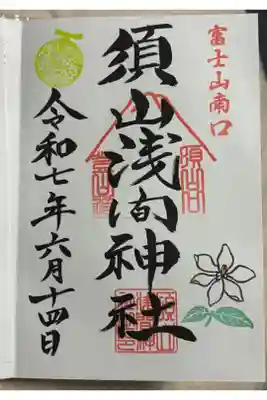 富士山南口
須山浅间神社
須山口
令和七年六月十四日